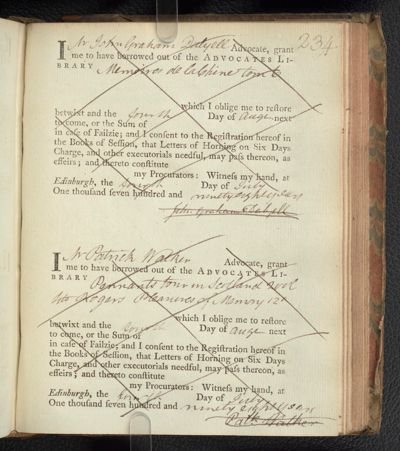 234
I Mr John Graham Dalyell Advocate, grant
me to have borrowed out of the ADVOCATES LI-
BRARY Memoires de la Chine tom
which I oblige me to restore
betwixt and the fourth Day of Augt next
to come, or the Sum of
in case of Failzie; and I consent to the Registration hereof in
the Books of Session, that Letters of Horning on Six Days
Charge, and other executorials needful, may pass thereon, as
effeirs; and thereto constitute
my Procurators: Witness my hand, at
Edinburgh, the fourth Day of July
One thousand seven hundred and ninety eight years
John Graham Dalyell
I Mr Patrick Walker Advocate, grant
me to have borrowed out of the ADVOCATES LI-
BRARY Pennants tour in Scotland 2 vol
Rogers Pleasures of Memory 12o
which I oblige me to restore
betwixt and the fourth Day of Augt next
to come, or the Sum of
in case of Failzie; and I consent to the Registration hereof in
the Books of Session, that Letters of Horning on Six Days
Charge, and other executorials needful, may pass thereon, as
effeirs; and thereto constitute
my Procurators: Witness my hand, at
Edinburgh, the fourth Day of July
One thousand seven hundred and ninety eight years
Patk Walker